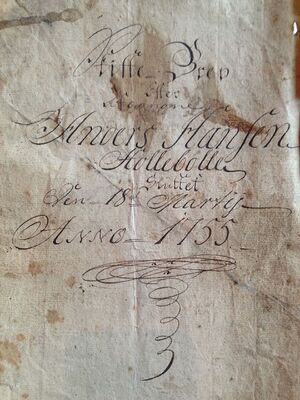 Skifte-Brev
Efter
Anders Hansen
Kollebolle
Sluttet
Den 18de Martij
ANNO 1755